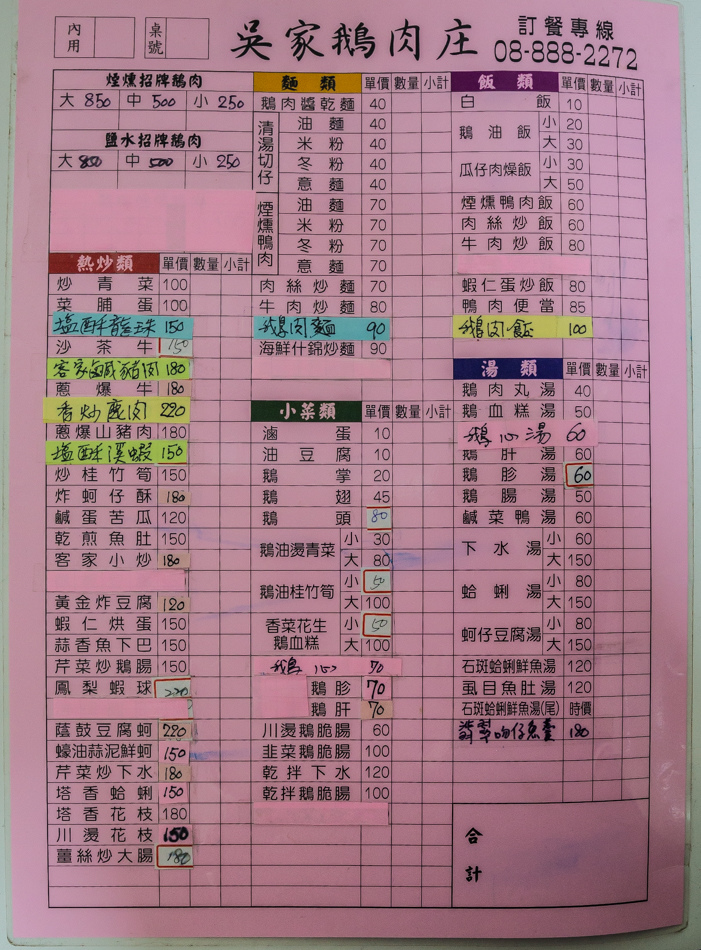 內用
桌號
吳家鵝肉庄
訂餐專線
08-888-2272
煙燻招牌鵝肉
大 850 中 500 小 250
鹽水招牌鵝肉
大 850 中 500 小 250
熱炒類 單價 數量 小計
炒青菜 100
菜脯蛋 100
塩酥龍珠 150
沙茶牛 150
客家鹹豬肉 180
蔥爆牛 180
香炒鹿肉 220
蔥爆山豬肉 180
塩酥溪蝦 150
炒桂竹筍 150
炸蚵仔酥 180
鹹蛋苦瓜 120
乾煎魚肚 150
客家小炒 180
黃金炸豆腐 120
蝦仁烘蛋 150
蒜香魚下巴 150
芹菜炒鵝腸 150
鳳梨蝦球 220
蔭鼓豆腐蚵 220
蠔油蒜泥鮮蚵 150
芹菜炒下水 180
塔香蛤蜊 150
塔香花枝 180
川燙花枝 150
薑絲炒大腸 180
麵類 單價 數量 小計
鵝肉醬乾麵 40
清湯切仔
油麵 40
米粉 40
冬粉 40
意麵 40
煙燻鴨肉
油麵 70
米粉 70
冬粉 70
意麵 70
肉絲炒麵 70
牛肉炒麵 80
鵝肉麵 90
海鮮什錦炒麵 90
小菜類 單價 數量 小計
滷蛋 10
油豆腐 10
鵝掌 20
鵝翅 45
鵝頭 80
鵝油燙青菜 小 30
大 80
鵝油桂竹筍 小 50
大 100
香菜花生鵝血糕 小 50
大 100
鵝心 70
鵝胗 70
鵝肝 70
川燙鵝脆腸 60
韭菜鵝脆腸 100
乾拌下水 120
乾拌鵝脆腸 100
飯類 單價 數量 小計
白飯 10
鵝油飯 小 20
大 30
瓜仔肉燥飯 小 30
大 50
煙燻鴨肉飯 60
肉絲炒飯 60
牛肉炒飯 80
蝦仁蛋炒飯 80
鴨肉便當 85
鵝肉飯 100
湯類 單價 數量 小計
鵝肉丸湯 40
鵝血糕湯 50
鵝心湯 60
鵝肝湯 60
鵝胗湯 60
鵝腸湯 50
鹹菜鴨湯 60
下水湯 小 60
大 150
蛤蜊湯 小 80
大 150
蚵仔豆腐湯 小 80
大 150
石斑蛤蜊鮮魚湯 120
虱目魚肚湯 120
石斑蛤蜊鮮魚湯(尾) 時價
翡翠吻仔魚羹 180
合計